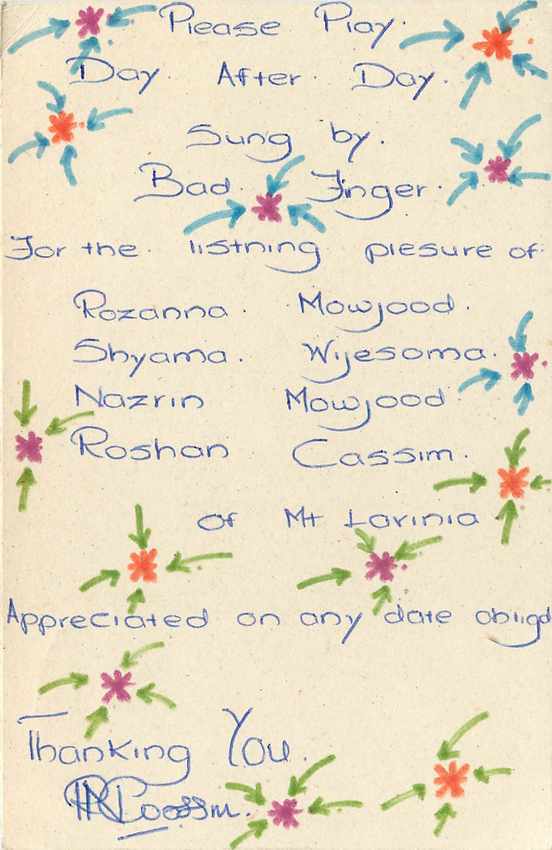 Please Play.
Day. After. Day.
Sung by.
Bad. Finger.
For the. listning plesure of.
Rozanna. Mowjood.
Shyama. Wijesoma.
Nazrin Mowjood
Roshan Cassim.
of Mt Lavinia.
Appreciated on any date obligd
Thanking You.